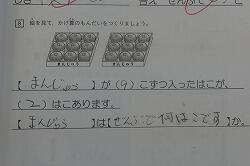 答え ぜんぶで
8 絵を見て、かけ算のもんだいをつくりましょう。
まんじゅう まんじゅう
【 まんじゅう 】が(9)こずつ入ったはこが、
(2)はこあります。
【 まんじゅう 】は【ぜんぶで何はこです】か。